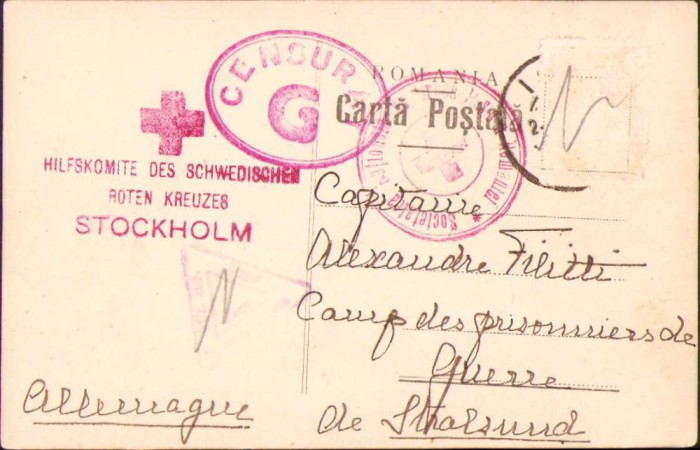 CENSURA
G
ROMANIA
Cartă Poștală
HILFSKOMITE DES SCHWEDISCHEN
ROTEN KREUZES
STOCKHOLM
Societatea Națională
României
Capitaine
Alexandre Filitti
Camp des prisonniers de
Guerre
de Stralsund
Allemagne